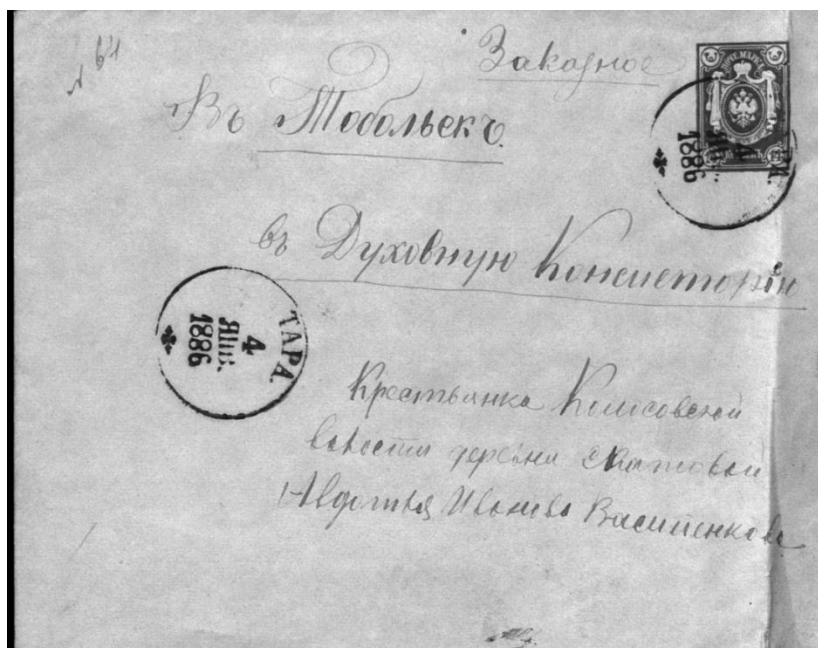 N 64
Заказное
Въ Тобольскъ.
въ Духовную Консисторію
ТАРА.
4
ЯНВ.
1886
4
ЯНВ.
1886
Крестьянка Колосовской
волости деревни
Авдотья Иванова Василенкова